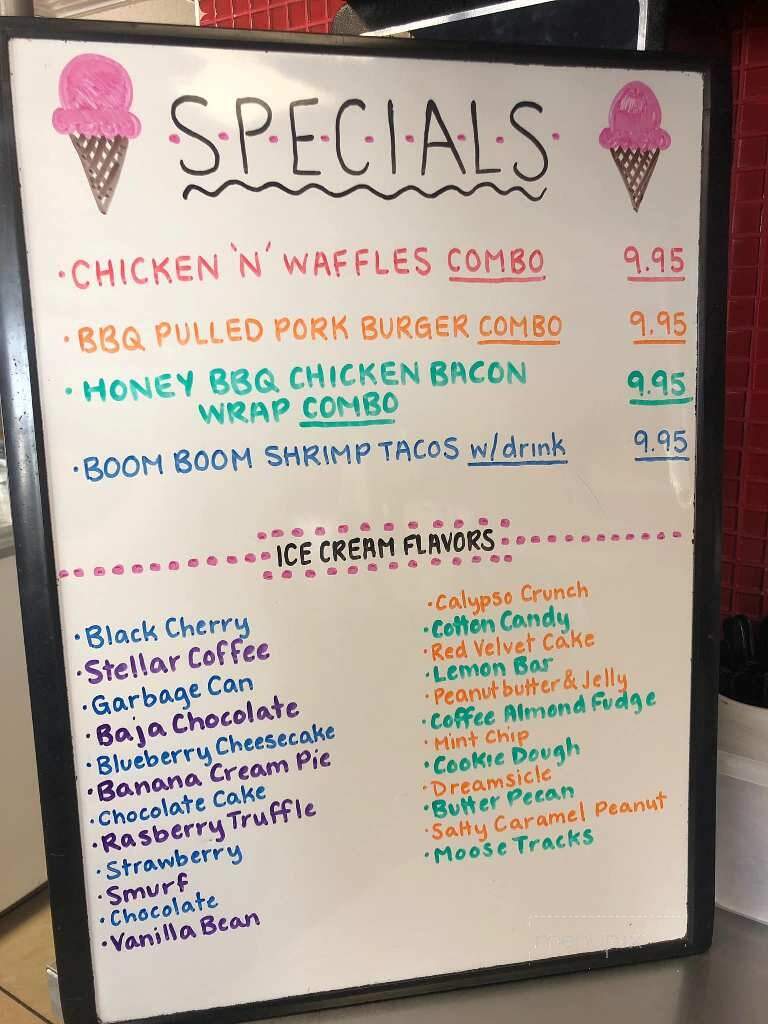 S·P·E·C·I·A·L·S
·CHICKEN 'N' WAFFLES COMBO 9.95
·BBQ PULLED PORK BURGER COMBO 9.95
·HONEY BBQ CHICKEN BACON 9.95
WRAP COMBO
·BOOM BOOM SHRIMP TACOS w/drink 9.95
ICE CREAM FLAVORS
·Black Cherry
·Stellar Coffee
·Garbage Can
·Baja Chocolate
·Blueberry Cheesecake
·Banana Cream Pie
·Chocolate Cake
·Rasberry Truffle
·Strawberry
·Smurf
·Chocolate
·Vanilla Bean
·Calypso Crunch
·Cotton Candy
·Red Velvet Cake
·Lemon Bar
·Peanutbutter & Jelly
·Coffee Almond Fudge
·Mint Chip
·Cookie Dough
·Dreamsicle
·Butter Pecan
·Salty Caramel Peanut
·Moose Tracks